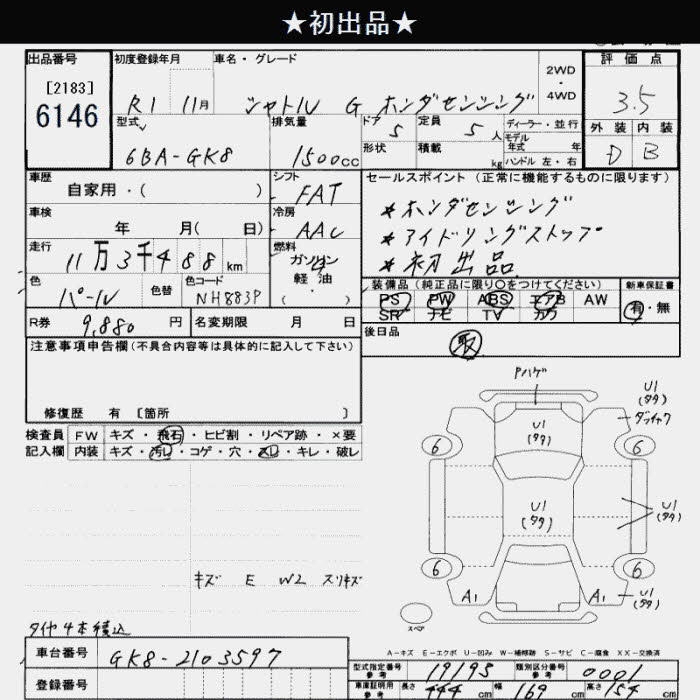 ★初出品★
出品番号 初度登録年月 車名・グレード 2WD・4WD 評価点
[2183]
6146 R1 11月 シャトル G ホンダセンシング 3.5
型式 排気量 ドア 5 定員 5人 ディーラー・並行 外装 内装
モデル年式 年
6BA-GK8 1500cc 形状 積載 kg ハンドル 左・右 D B
車歴 シフト セールスポイント (正常に機能するものに限ります)
自家用・( ) FAT *ホンダセンシング
車検 冷房 *アイドリングストップ
年 月( 日) AAC *初出品
走行 燃料
11万3千488km ガソリン
軽油
( ・ )
色 色替 色コード 装備品(純正品に限り〇をつけてください) 新車保証書
パール NH883P PS PW ABS エアB AW 有・無
SR ナビ TV カワ
R券 9,880円 名変期限 月 日 後日品
取
注意事項申告欄(不具合内容等は具体的に記入して下さい)
修復歴 有 〔箇所 〕
検査員 FW キズ・飛石・ヒビ割・リペア跡・×要
記入欄 内装 キズ・汚レ・コゲ・穴・スレ・キレ・破レ
Pハゲ
U1
(タタ)
U1
(タタ)
6 6
U1
(タタ)
U1
(タタ)
6 6
A1 A1 U1
(タタ)
スペア
キズ E W2 スリキズ
タイヤ4本積込
A-キズ E-エクボ U-凹み W-補修跡 S-サビ C-腐食 XX-交換済
車台番号 GK8-2103597
型式指定番号 参考 19195 類別区分番号 参考 0001
登録番号
車庫証明用 参考 長さ 444cm 幅 169cm 高さ 154cm